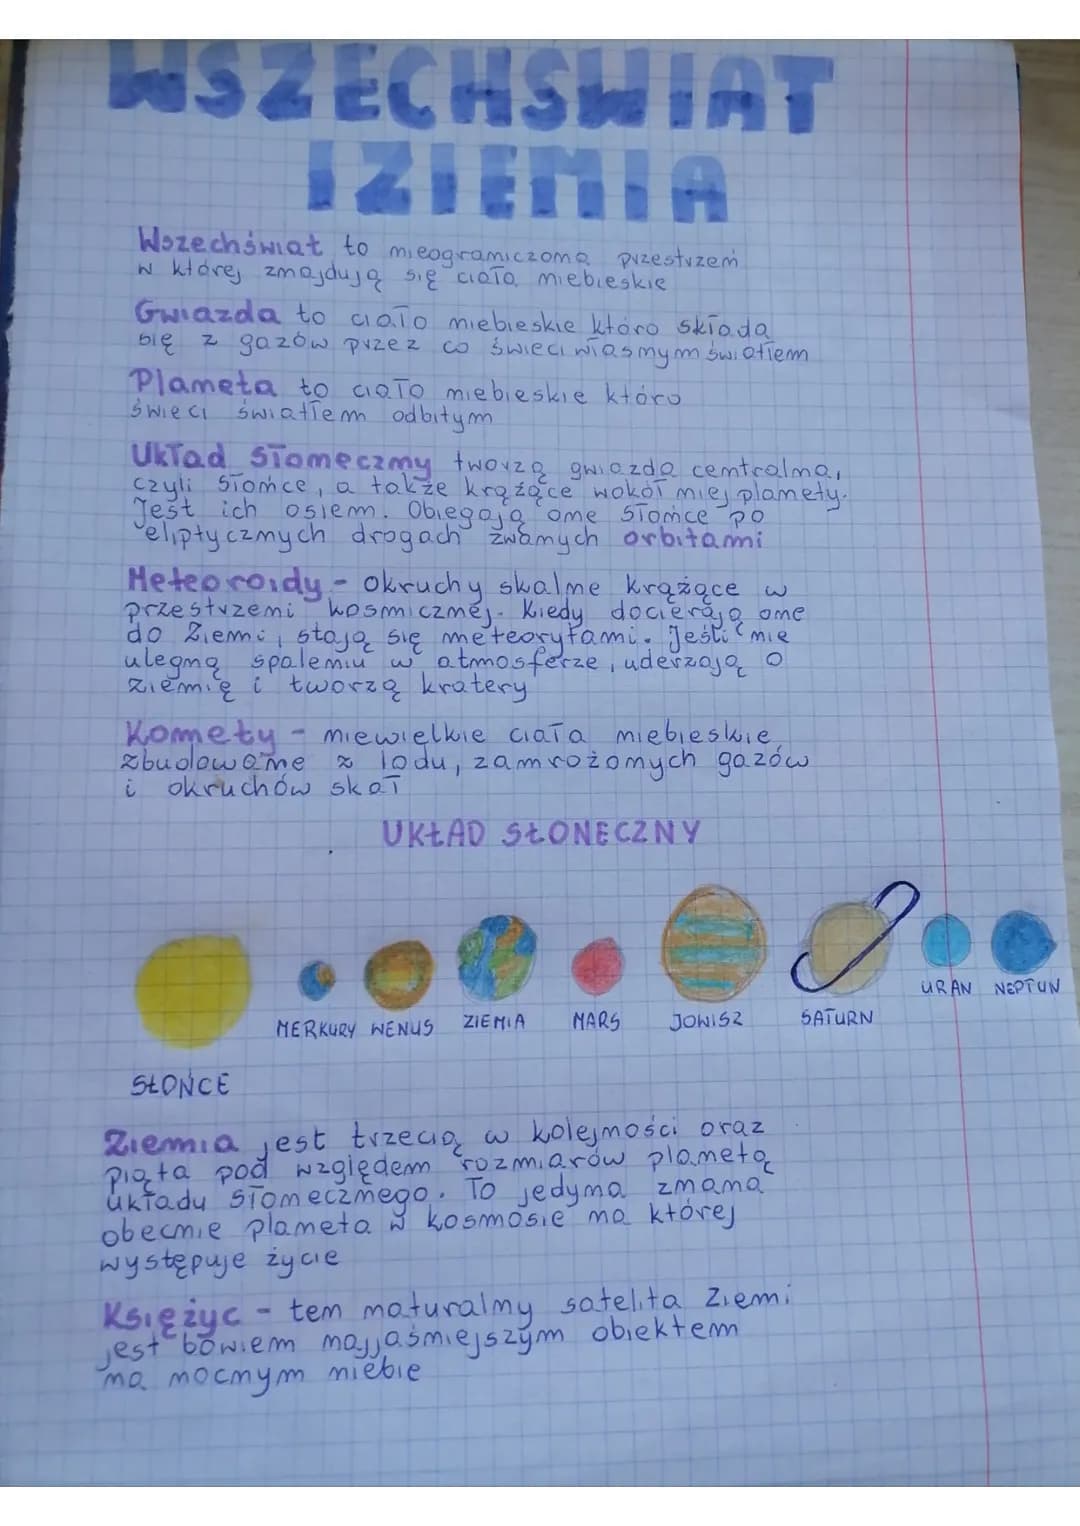 WSZECHSWIAT
I ZIEMIA
Wszechświat to nieograniczona przestrzeń
w której znajdują się ciała niebieskie
Gwiazda to ciało niebieskie które składa
się z gazów przez co świeci własnym światłem
Planeta to ciało niebieskie które
świeci światłem odbitym
Układ słoneczny tworzą gwiazda centralna,
czyli Słońce, a także krążące wokół niej planety.
Jest ich osiem. Obiegają one Słońce po
eliptycznych drogach zwanych orbitami
Meteoroidy - okruchy skalne krążące w
przestrzeni kosmicznej. Kiedy docierają one
do Ziemi, stają się meteorytami. Jeśli nie
ulegną spaleniu w atmosferze, uderzają o
ziemię i tworzą kratery
Komety - niewielkie ciała niebieskie
zbudowane z lodu, zamrożonych gazów
i okruchów skał
UKŁAD SŁONECZNY
MERKURY WENUS ZIEMIA MARS JOWISZ SATURN URAN NEPTUN
SŁOŃCE
Ziemia jest trzecią w kolejności oraz
piąta pod względem rozmiarów planetą
układu Słonecznego. To jedyna znana
obecnie planeta w kosmosie na której
występuje życie
Księżyc - ten naturalny satelita Ziemi
jest bowiem najjaśniejszym obiektem
na nocnym niebie